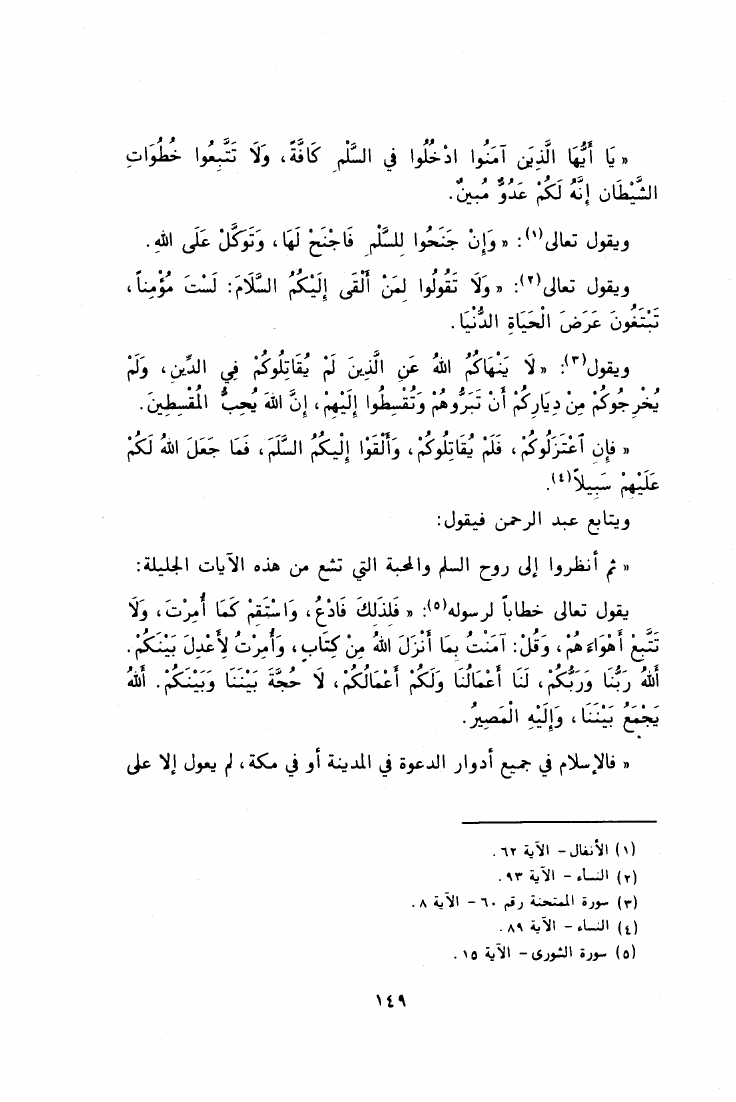 « يَا أَيُّهَا الَّذِينَ آمَنُوا ادْخُلُوا في السَّلْمِ كَافَّةً، وَلَا تَتَّبِعُوا خُطُوَاتِ
الشَّيْطَان إِنَّهُ لَكُمْ عَدُوٌّ مُبينٌ.
ويقول تعالى(١): « وَإِنْ جَنَحُوا لِلسَّلْمِ فَاجْنَحْ لَهَا، وَتَوَكَّلْ عَلَى اللهِ.
ويقول تعالى(٢): « وَلَا تَقُولُوا لِمَنْ أَلْقَى إِلَيْكُمُ السَّلَامَ: لَسْتَ مُؤْمِناً،
تَبْتَغُونَ عَرَضَ الْحَيَاةِ الدُّنْيَا.
ويقول(٣): « لَا يَنْهَاكُمُ اللهُ عَنِ الَّذِينَ لَمْ يُقَاتِلُوكُمْ فِي الدِّينِ، وَلَمْ
يُخْرِجُوكُمْ مِنْ دِيَارِكُمْ أَنْ تَبَرُّوهُمْ وَتُقْسِطُوا إِلَيْهِمْ، إِنَّ اللهَ يُحِبُّ المُقْسِطِينَ.
« فإن اَعْتَزَلُوكُمْ، فَلَمْ يُقَاتِلُوكُمْ، وَأَلْقَوْا إِلَيكُمُ السَّلَمَ، فَمَا جَعَلَ اللهُ لَكُمْ
عَلَيْهِمْ سَبِيلاً(٤).
ويتابع عبد الرحمن فيقول:
« ثم أنظروا إلى روح السلم والمحبة التي تشع من هذه الآيات الجليلة:
يقول تعالى خطاباً لرسوله(٥): « فَلِذلِكَ فَادْعُ، وَاسْتَقِمْ كَمَا أُمِرْتَ، وَلَا
تَتَّبِعْ أَهْوَاءَهُمْ، وَقُلْ: آمَنْتُ بِمَا أَنْزَلَ اللهُ مِنْ كِتَابٍ، وَأُمِرْتُ لِأَعْدِلَ بَيْنَكُمْ.
أَللهُ رَبُّنَا وَرَبُّكُمْ، لَنَا أَعْمَالُنَا وَلَكُمْ أَعْمَالُكُمْ، لَا حُجَّةَ بَيْنَنَا وَبَيْنَكُمْ. أَللهُ
يَجْمَعُ بَيْنَنَا، وَإِلَيْهِ الْمَصِيرُ.
« فالإسلام في جميع أدوار الدعوة في المدينة أو في مكة، لم يعول إلا على
(١) الأنفال – الآية ٦٢.
(٢) النساء – الآية ٩٣.
(٣) سورة الممتحنة رقم ٦٠ – الآية ٨.
(٤) النساء – الآية ٨٩.
(٥) سورة الشورى – الآية ١٥.
١٤٩